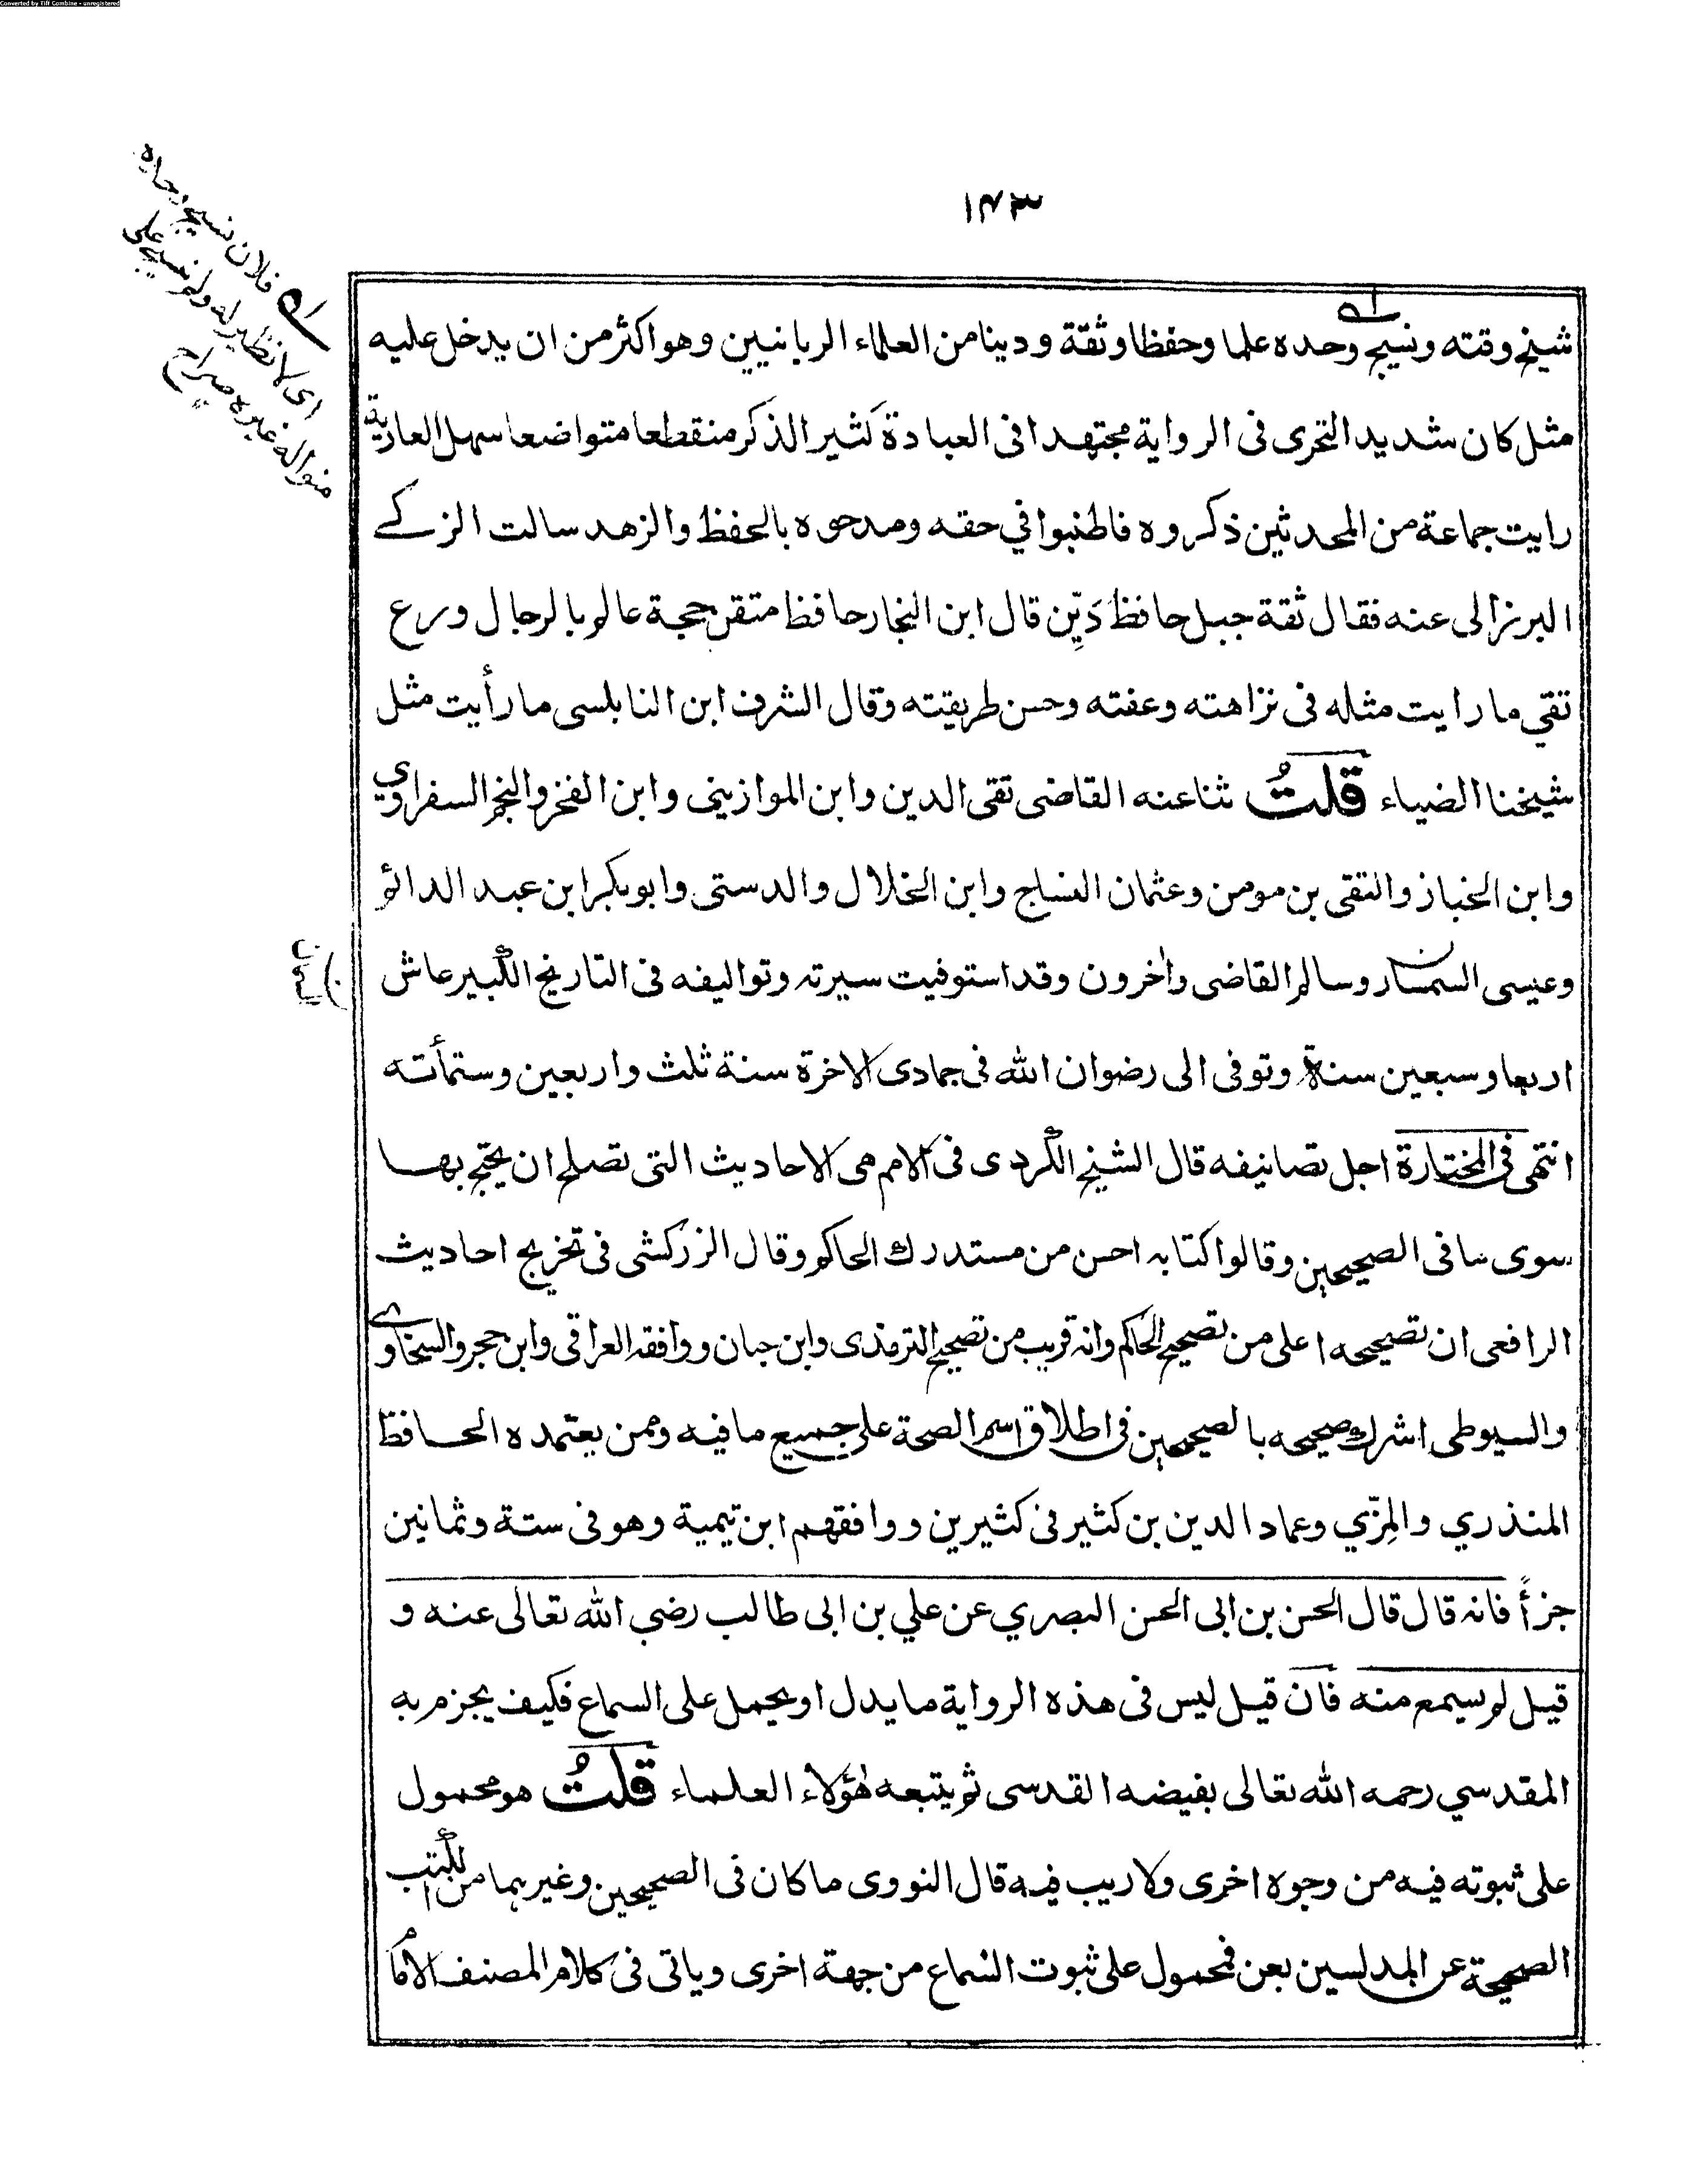 Converted by Tiff Combine - unregistered
١٤٣
شيخ وقته ونسيج وحده علما وحفظا وثقة ودينا من العلماء الربانيين وهو اكثر من ان يدخل عليه
مثل كان شديد التحرى فى الرواية مجتهدا فى العبادة كثير الذكر منقطعا متواضعا سهل العارية
رايت جماعة من المحدثين ذكروه فاطنبوا في حقه ومدحوه بالحفظ والزهد سالت الزكے
البرزالى عنه فقال ثقة جبل حافظ دَيِّن قال ابن النجار حافظ متقن حجة عالم بالرجال ورع
تقي ما رايت مثله فى نزاهته وعفته وحسن طريقته وقال الشرف ابن النابلسى ما رأيت مثل
شيخنا الضياء قلتُ ثنا عنه القاضى تقى الدين وابن الموازينى وابن الفخر والنجم السفراوي
وابن الخباز والتقى بن مومن وعثمان النساج وابن الخلال والدستى وابوبكر ابن عبد الدائم
وعيسى السمسار وسالم القاضى واٰخرون وقد استوفيت سيرته وتواليفه فى التاريخ الكبير عاش
اربعا وسبعين سنة وتوفى الى رضوان الله فى جمادى الاخرة سنة ثلث واربعين وستمأته
انتهى فى المختارة اجل تصانيفه قال الشيخ الكردى فى الامم هى الاحاديث التى تصلح ان يحتج بها
سوى ما فى الصحيحين وقالوا كتابه احسن من مستدرك الحاكم وقال الزركشى فى تخريج احاديث
الرافعى ان تصحيحه اعلى من تصحيح الحاكم وانه قريب من تصحيح الترمذى وابن حبان ووافقه العراقى وابن حجر والسخاوے
والسيوطى اشرك صحيحه بالصحيحين فى اطلاق اسم الصحة على جميع ما فيه وممن يعتمده الحافظ
المنذري والمِزّي وعماد الدين بن كثير فى كثيرين ووافقهم ابن تيمية وهو فى ستة وثمانين
جزأً فانه قال قال الحسن بن ابى الحسن البصري عن علي بن ابى طالب رضي الله تعالى عنه و
قيل لم يسمع منه فان قيل ليس فى هذه الرواية ما يدل او يحمل على السماع فكيف يجزم به
المقدسي رحمه الله تعالى بفيضه القدسى ثم يتبعه هٰؤلاء العلماء قلتُ هو محمول
على ثبوته فيه من وجوه اخرى ولا ريب فيه قال النووى ما كان فى الصحيحين وغيرهما من الكتب
الصحيحة عن المدلسين بعن فمحمول على ثبوت السماع من جهة اخرى وياتى فى كلام المصنف الامام
فلان نسيج وحده
اى لا نظير له ولم ينسج على
منواله غيره صراح